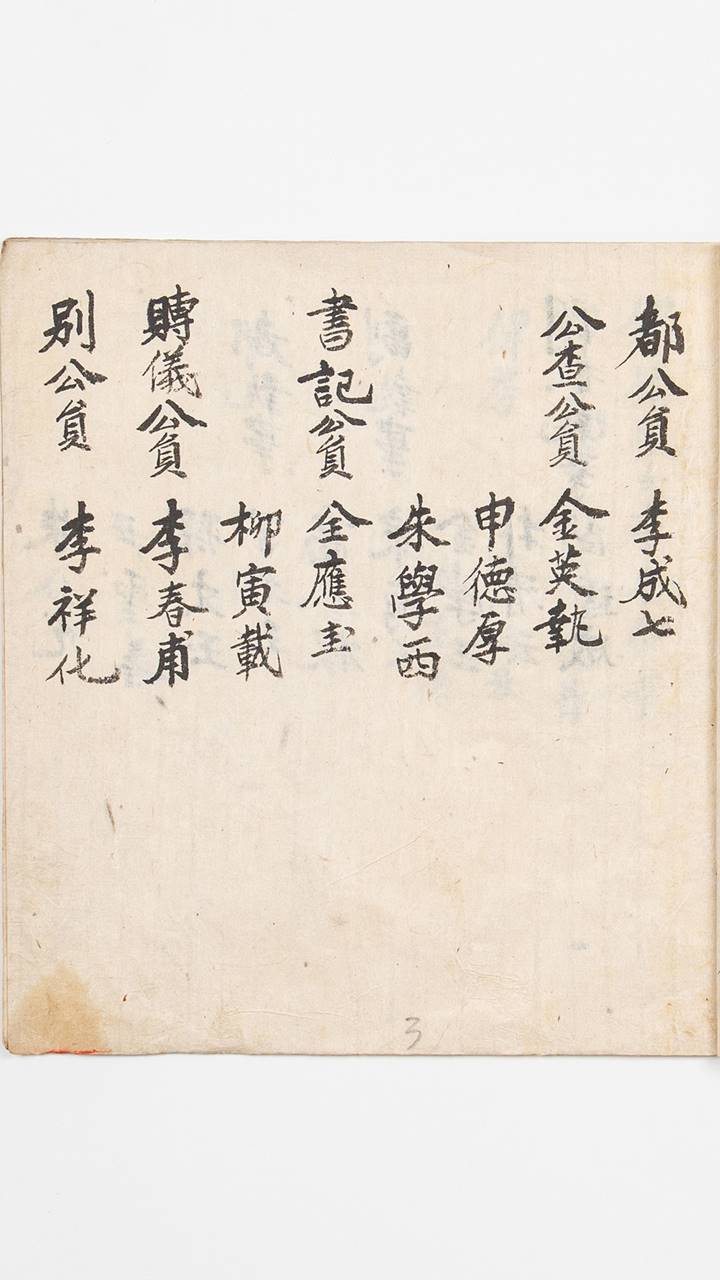 都公員 李成七
公査公員 金英執
申德厚
朱學西
書記公員 全應圭
柳寅載
賻儀公員 李春甫
别公員 李祥化
3